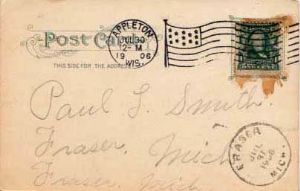 Post Card
THIS SIDE FOR THE ADDRESS
APPLETON
JUL 30
12-M
1906
WIS.
Paul L. Smith.
Fraser,
Mich
Fraser, Mich
FRASER
JUL
31
1906
MICH.